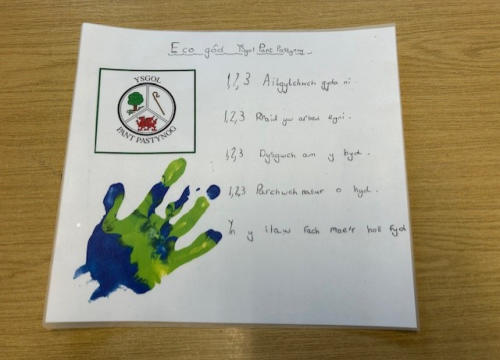 Eco gôd Ysgol Pant Pastynog
YSGOL
PANT PASTYNOG
1,2,3 Ailgylchwch gyda ni.
1,2,3 Rhaid yw arbed egni.
1,2,3 Dysgwch am y byd.
1,2,3 Parchwch natur o hyd.
Yn y llaw fach mae'r holl fyd